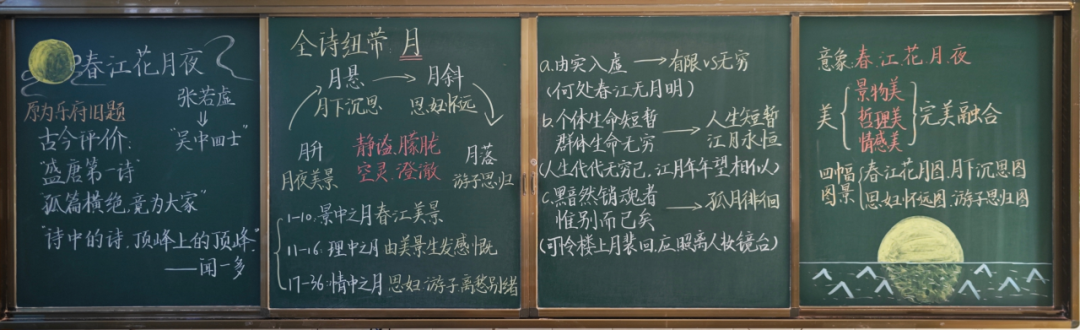 春江花月夜
张若虚
⇓
"吴中四士"
原为乐府旧题
古今评价:
"盛唐第一诗"
孤篇横绝,竟为大家"
"诗中的诗,顶峰上的顶峰."
——闻一多
全诗纽带:月
月悬 → 月斜
月下沉思 思妇怀远
月升 静谧.朦胧 月落
月夜美景 空灵.澄澈 游子思归
1-10.景中之月 春江美景
11-16.理中之月 由美景生发感慨
17-36:情中之月.思妇.游子离愁别绪
a.由实入虚 → 有限vs无穷
(何处春江无月明)
b.个体生命短暂 人生短暂
群体生命无穷 → 江月永恒
(人生代代无穷已,江月年年望相似)
c.黯然销魂者
惟别而已矣 → 孤月徘徊
(可怜楼上月裴回,应照离人妆镜台)
意象:春.江.花.月.夜
美 景物美 哲理美 情感美 完美融合
四幅图景
春江花月图.月下沉思图
思妇怀远图.游子思归图